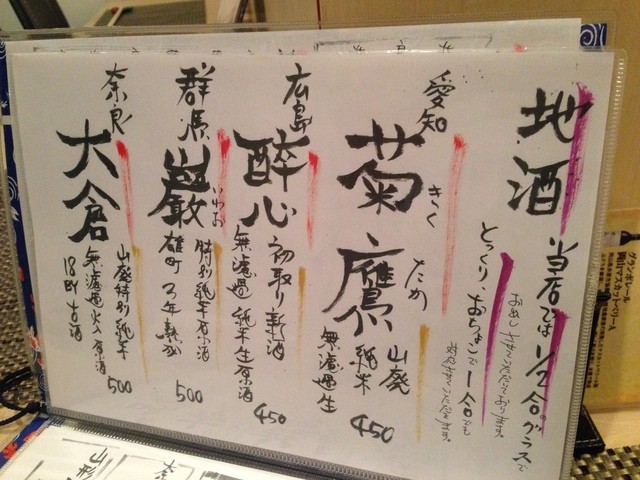 地酒
当店では1/2合グラスで
おめしあがりいただいております。
とっくり、おちょこで一合でも
愛知
菊鷹
きく
たか
山廃
純米
無濾過生
450
広島
酔心
初取り新酒
無濾過純米生原酒
450
群馬
巌
いわお
特別純米原酒
雄町 3年熟成
500
奈良
大倉
山廃特別純米
無濾過火入原酒
18BY古酒
500
山形